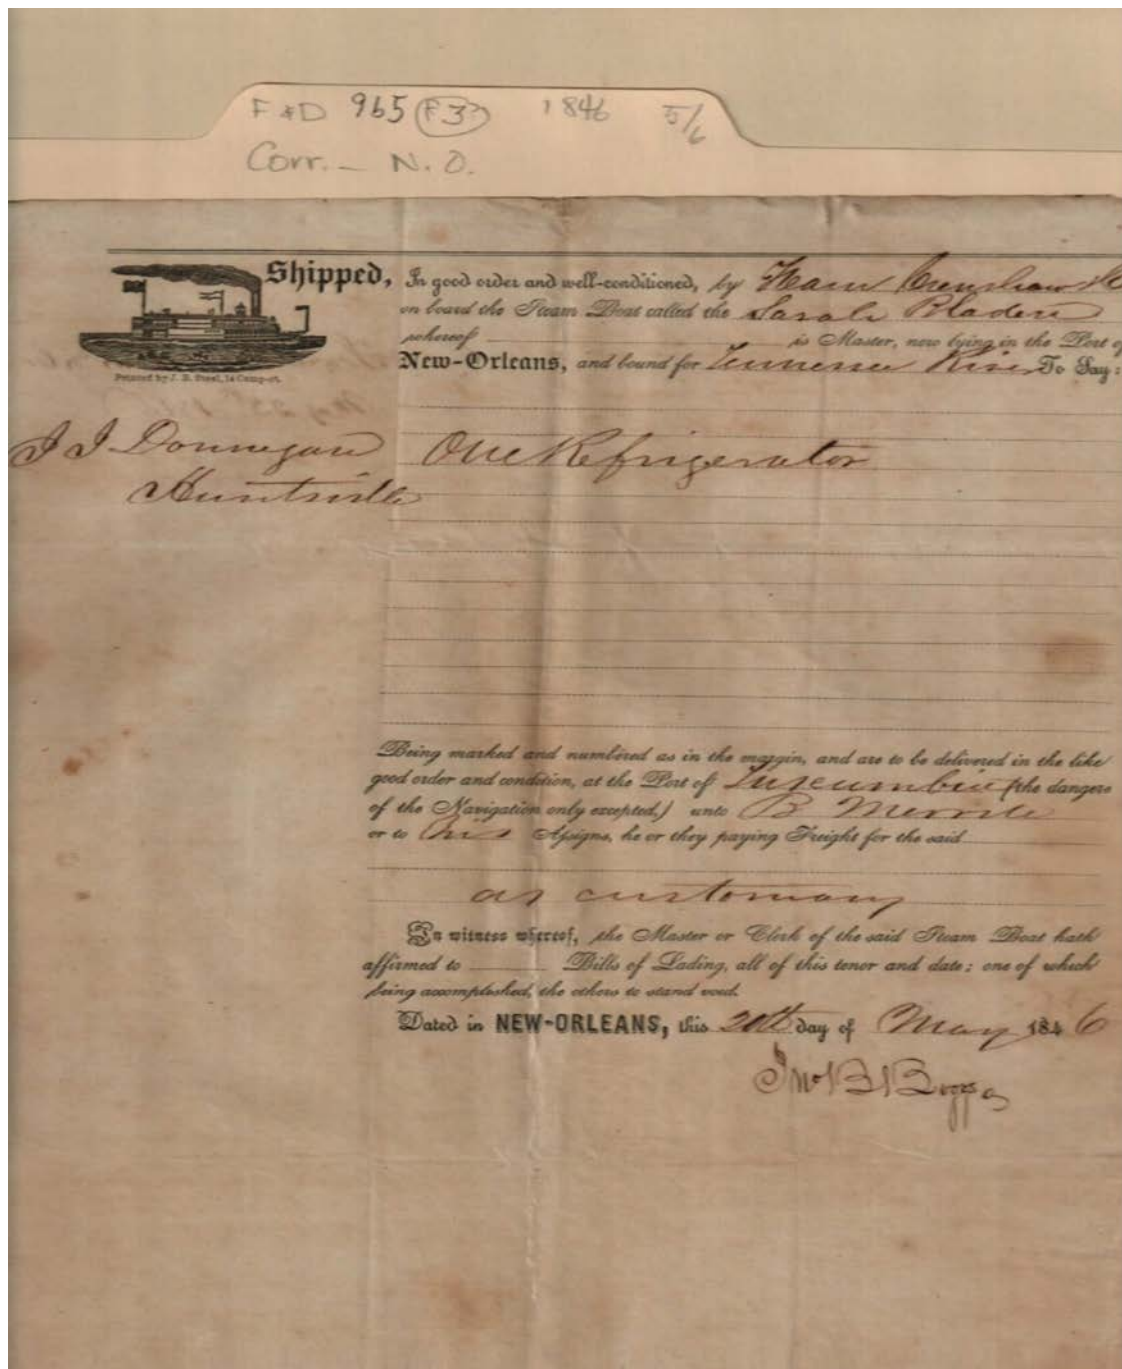 F & D 965 F3 1846 5/6
Corr. – N. O.
Shipped, In good order and well-conditioned, by Crenshaw
on board the Steam Boat called the Sarah Bladen
whereof is Master, now lying in the Port of
New-Orleans, and bound for Tennessee River To Say:
Printed by J. B. Steel, 14 Camp-st.
J J Donnegan One Refrigerator
Huntsville
Being marked and numbered as in the margin, and are to be delivered in the like
good order and condition, at the Port of Tuscumbia (the dangers
of the Navigation only excepted,) unto B
or to his Assigns, he or they paying Freight for the said
as customary
In witness whereof, the Master or Clerk of the said Steam Boat hath
affirmed to Bills of Lading, all of this tenor and date; one of which
being accomplished, the others to stand void.
Dated in NEW-ORLEANS, this 20th day of May 1846
Jno B Boggs